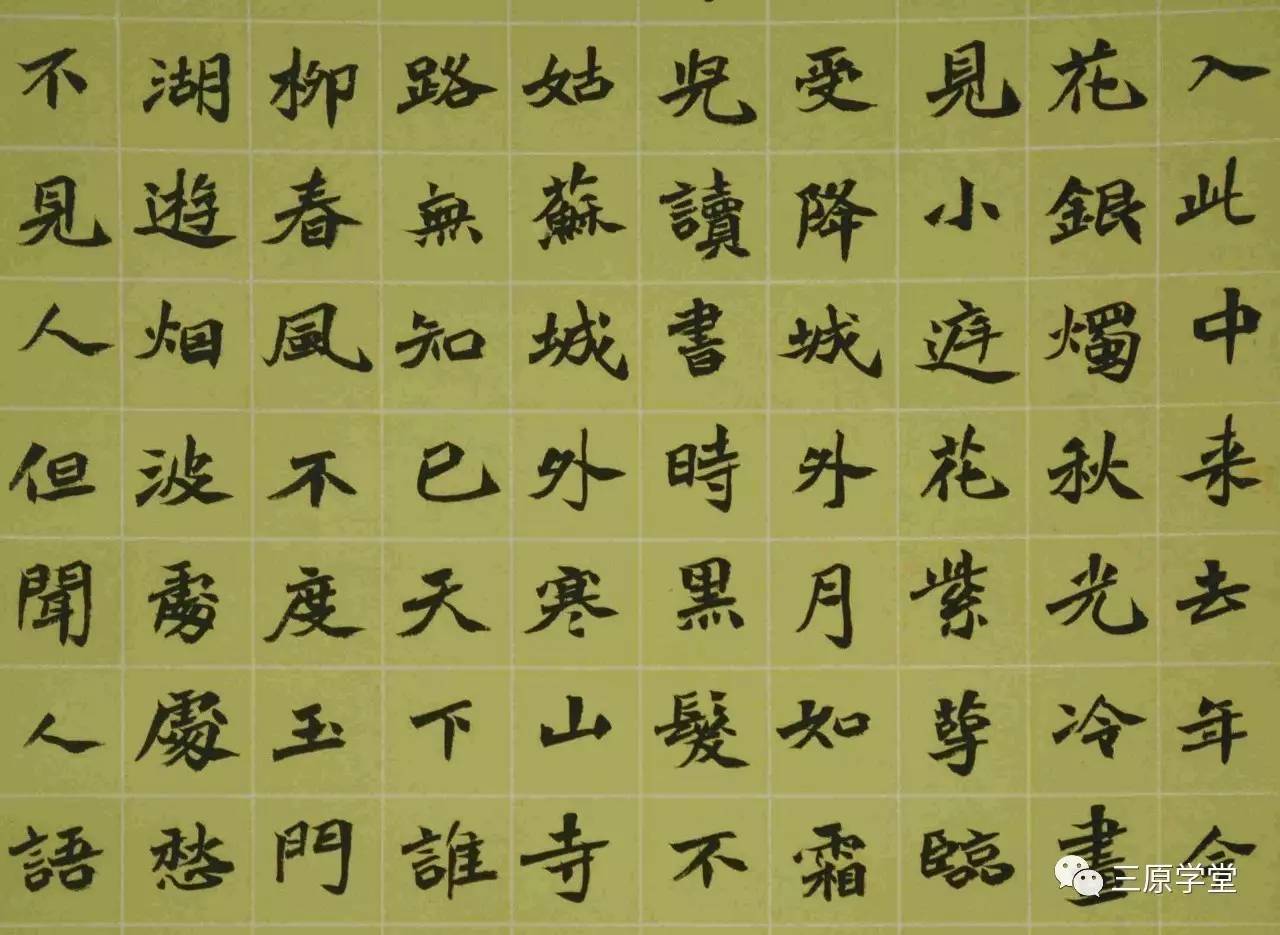 入此中来去年今
花銀燭秋光冷畫
見小庭花紫萼臨
受降城外月如霜
兒讀書時黑髮不
姑蘇城外寒山寺
路無知已天下誰
柳春風不度玉門
湖遊烟波處處愁
不見人但聞人語
三原学堂